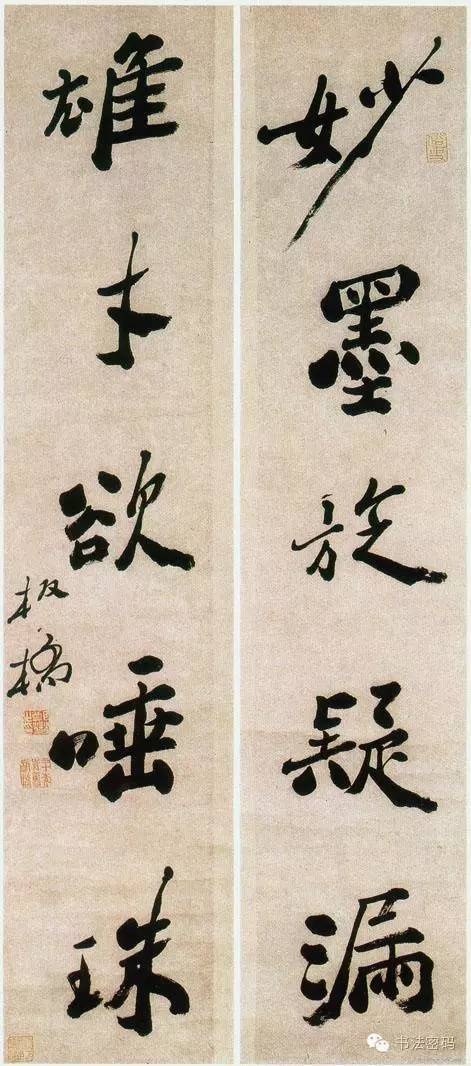 妙墨旋疑漏
雄才欲唾珠
板橋
书法密码